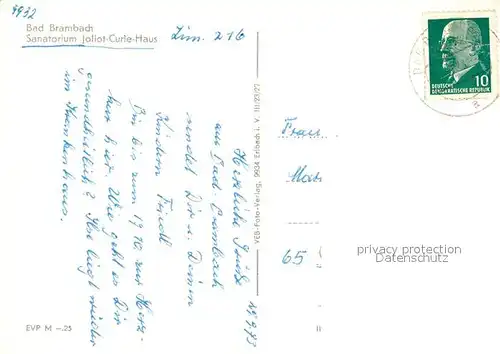 9932
Bad Brambach
Sanatorium Joliot-Curie-Haus
Zim. 216
10
DEUTSCHE
DEMOKRATISCHE REPUBLIK
29.9.73
Herzliche Grüße
aus Bad Brambach
sendet Dir u. Deinen
Kindern
Bin bis zum 19.10 zur Herz-
kur hier. Wie geht es Dir
gesundheitlich? Ilse liegt wieder
im Krankenhaus.
VEB-Foto-Verlag, 9934 Erlbach i. V.
Frau
65
privacy protection
Datenschutz
EVP M -.25